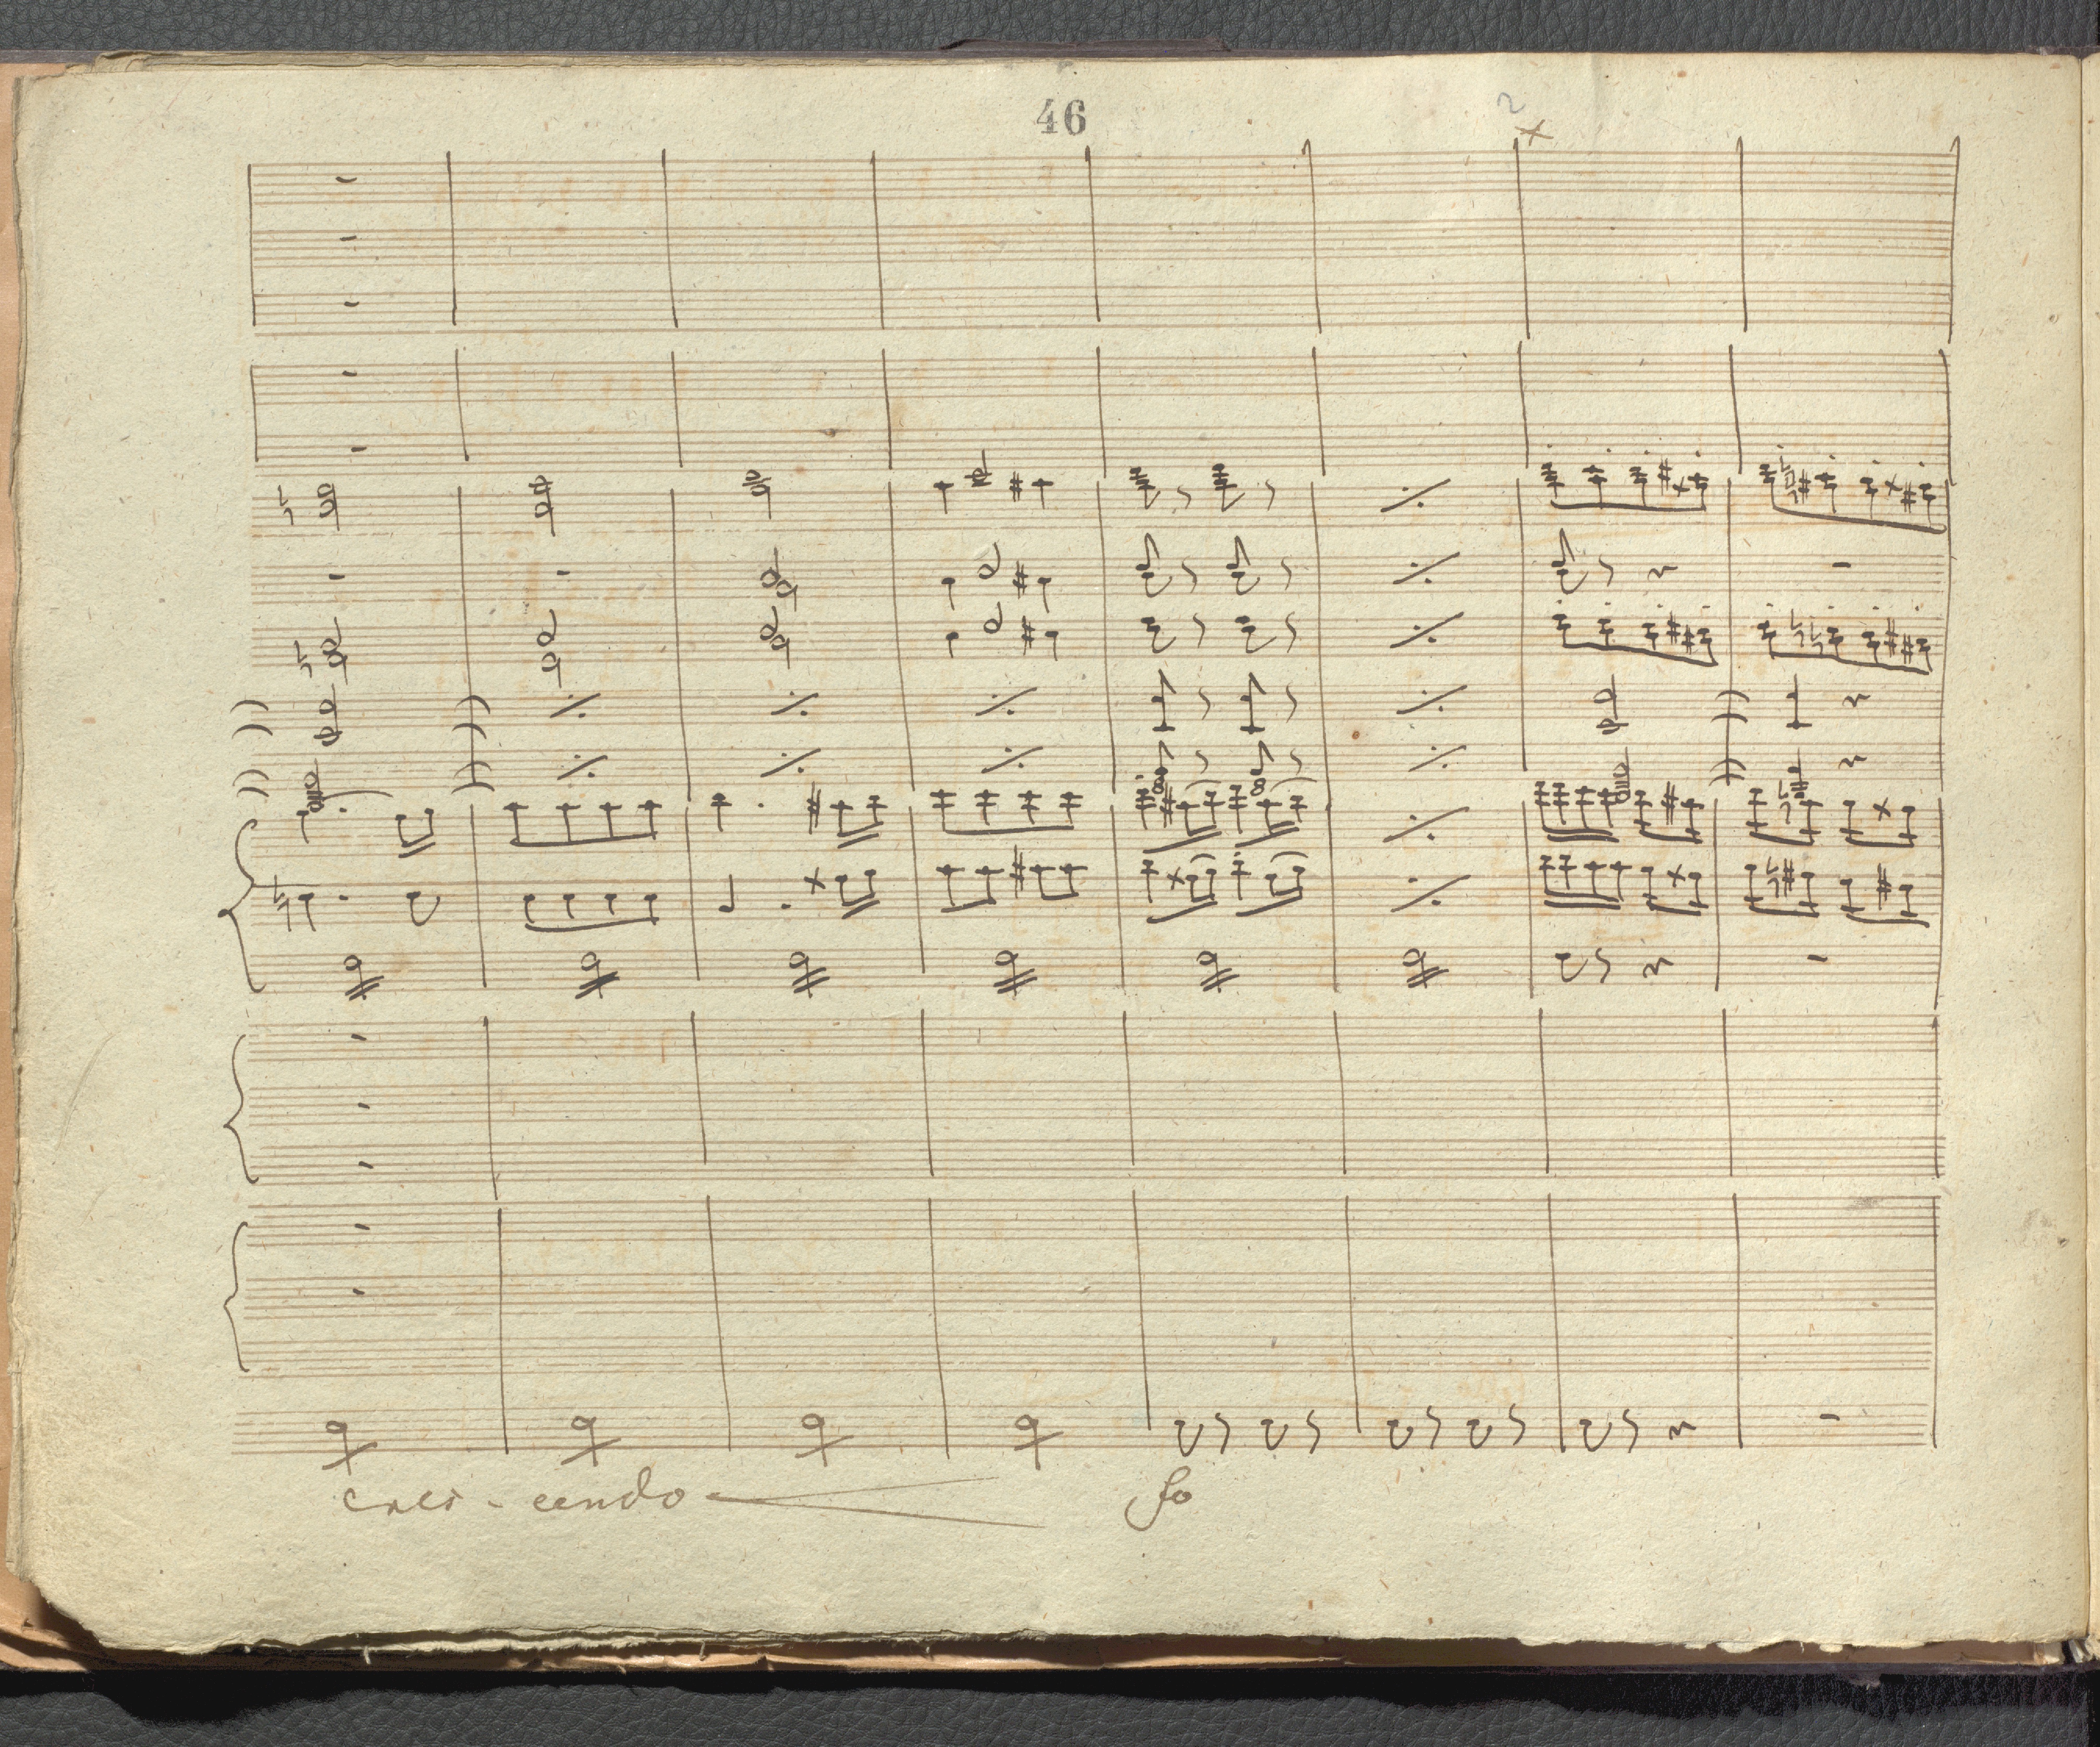 46
2
x
cres - cendo
fo